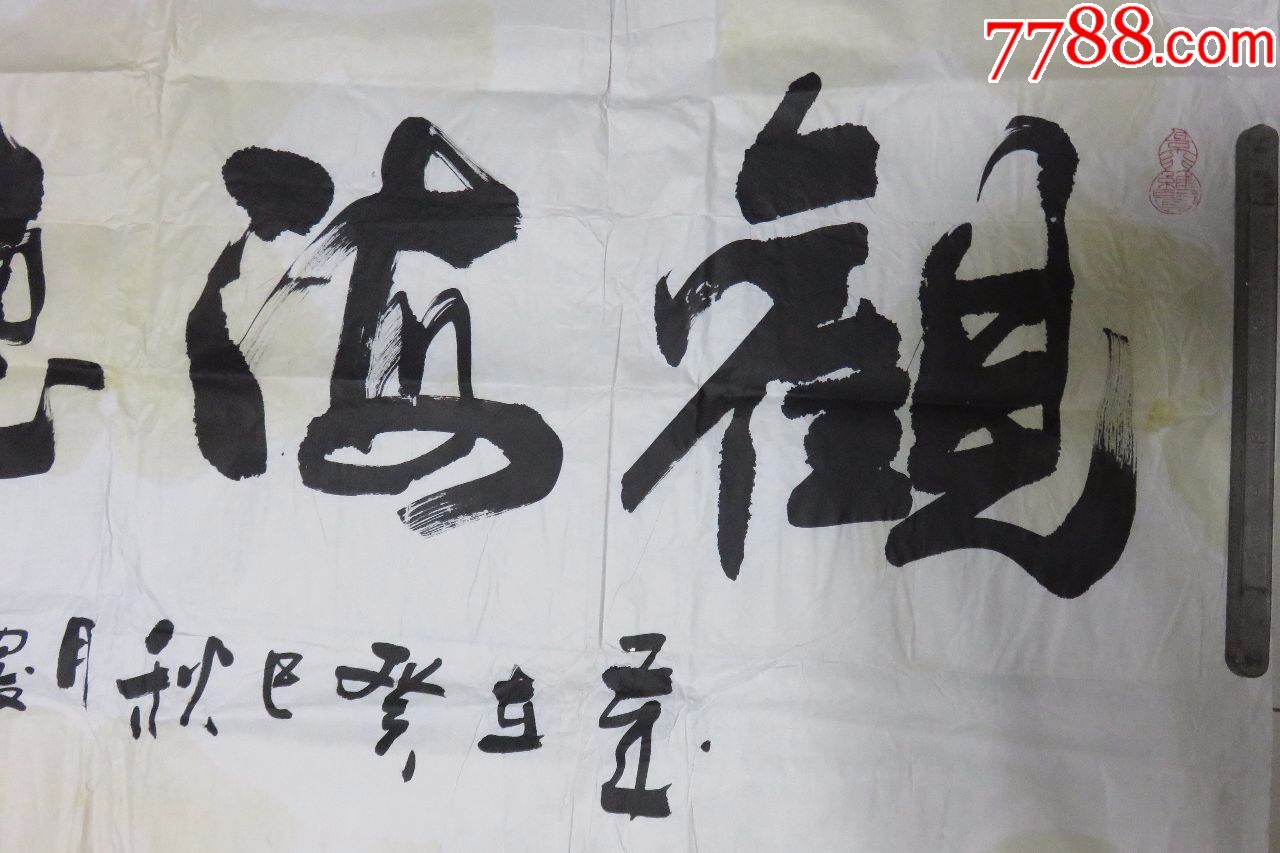 7788.com
觀海
歲在癸巳秋月